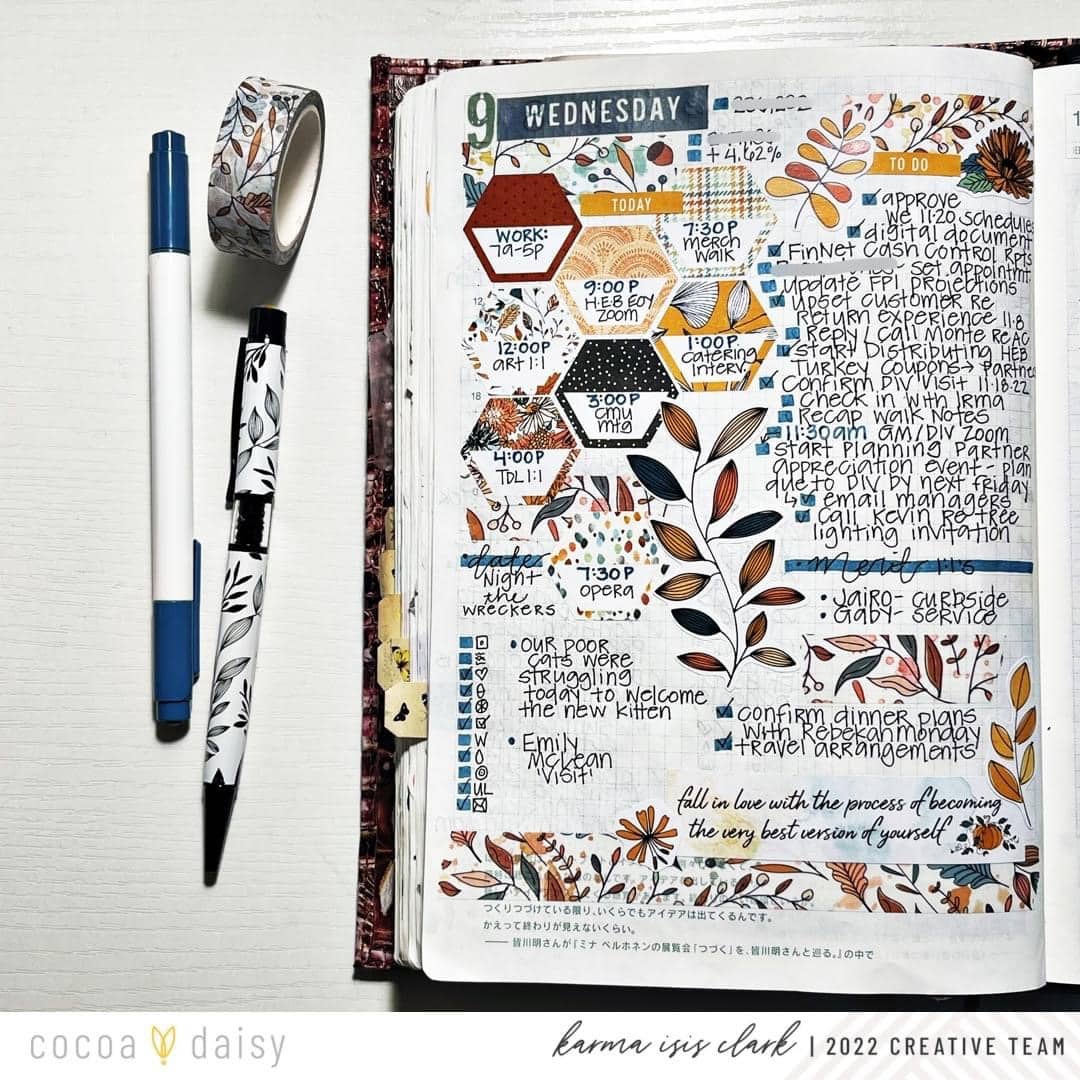 9 WEDNESDAY
+ 4.62%
TODAY
WORK:
7a-5p
7:30 P
merch
walk
9:00 P
H·E·B EOY
ZOOM
12
12:00P
ART 1:1
1:00P
catering
interv.
18
3:00P
cmu
mtg
4:00P
TDL 1:1
date
Night
the
WRECKERS
7:30 P
OPERA
TO DO
approve
we 11:20 schedules
digital document
FinNet Cash Control Rpts
set appointmt
update FPI projections
upset customer Re
Return experience 11:8
Reply/call Monte Re AC
start Distributing HEB
Turkey coupons → Partner
confirm DIV visit 11·18·22
check in with Irma
Recap walk Notes
11:30am GM/DIV Zoom
start planning Partner
appreciation event - plan
due to DIV by next friday
email managers
call Kevin Re tree
lighting invitation
Merid 1:1's
• Jairo- curbside
• Gaby- service
• OUR POOR
cats were
struggling
today to welcome
the new kitten
• Emily
McLean
'visit'
W
UL
confirm dinner plans
with Rebekah monday
travel arrangements
fall in love with the process of becoming
the very best version of yourself
つくりつづけている限り、いくらでもアイデアは出てくるんです。
かえって終わりが見えないくらい。
—— 皆川明さんが『ミナ ペルホネンの展覧会「つづく」を、皆川明さんと巡る。』の中で
cocoa daisy
karma isis clark | 2022 CREATIVE TEAM